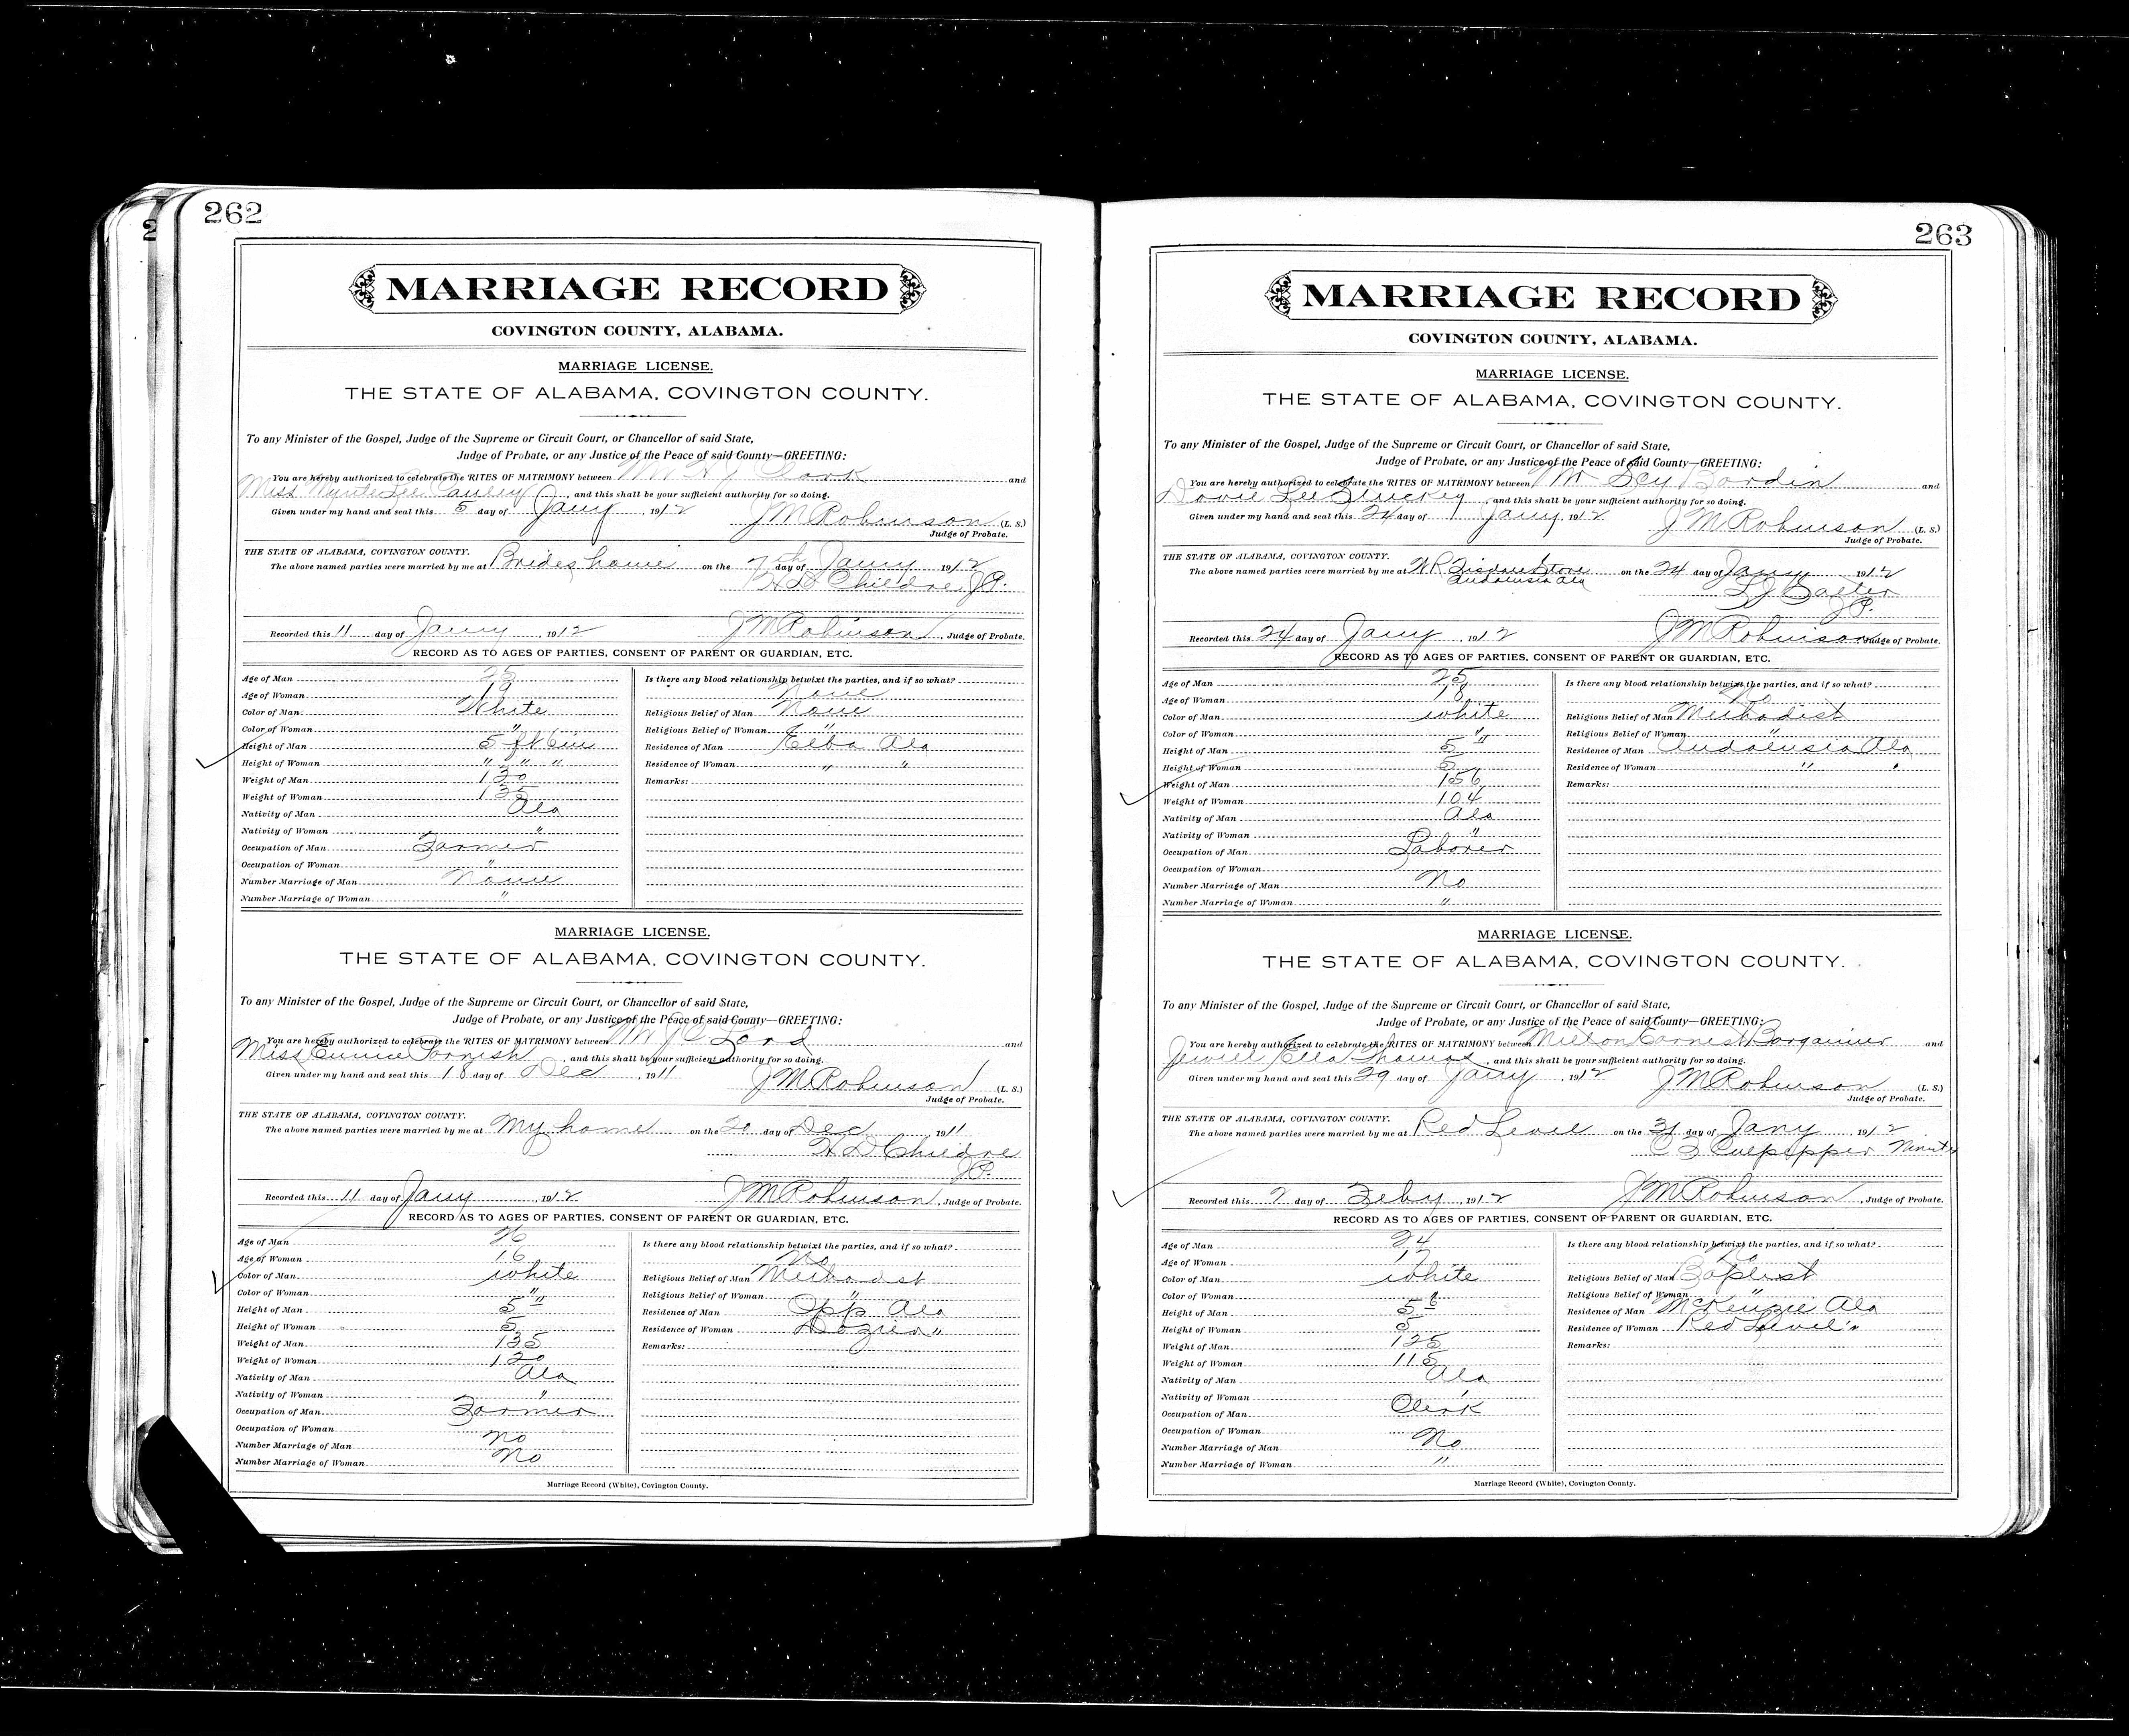 262
MARRIAGE RECORD
COVINGTON COUNTY, ALABAMA.
MARRIAGE LICENSE.
THE STATE OF ALABAMA, COVINGTON COUNTY.
To any Minister of the Gospel, Judge of the Supreme or Circuit Court, or Chancellor of said State,
Judge of Probate, or any Justice of the Peace of said County—GREETING:
You are hereby authorized to celebrate the RITES OF MATRIMONY between Mr H J Clark and
Miss Lee , and this shall be your sufficient authority for so doing.
Given under my hand and seal this 5 day of Jany , 1912 J M Robinson (L. S.)
Judge of Probate.
THE STATE OF ALABAMA, COVINGTON COUNTY.
The above named parties were married by me at Brides home on the 7th day of Jany 1912
H D Childre, J P.
Recorded this 11 day of Jany , 1912 J M Robinson , Judge of Probate.
RECORD AS TO AGES OF PARTIES, CONSENT OF PARENT OR GUARDIAN, ETC.
Age of Man 25
Age of Woman 19
Color of Man White
Color of Woman "
Height of Man 5 ft 6 in
Height of Woman " " "
Weight of Man 130
Weight of Woman 135
Nativity of Man Ala
Nativity of Woman "
Occupation of Man Farmer
Occupation of Woman "
Number Marriage of Man None
Number Marriage of Woman "
Is there any blood relationship betwixt the parties, and if so what?
None
Religious Belief of Man None
Religious Belief of Woman "
Residence of Man Elba Ala
Residence of Woman " "
Remarks:
MARRIAGE LICENSE.
THE STATE OF ALABAMA, COVINGTON COUNTY.
To any Minister of the Gospel, Judge of the Supreme or Circuit Court, or Chancellor of said State,
Judge of Probate, or any Justice of the Peace of said County—GREETING:
You are hereby authorized to celebrate the RITES OF MATRIMONY between Mr J C Lord and
Miss Eunice Parrish , and this shall be your sufficient authority for so doing.
Given under my hand and seal this 18 day of Dec , 1911 J M Robinson (L. S.)
Judge of Probate.
THE STATE OF ALABAMA, COVINGTON COUNTY.
The above named parties were married by me at My home on the 20 day of Dec 1911
H D Childre
J P.
Recorded this 11 day of Jany , 1912 J M Robinson , Judge of Probate.
RECORD AS TO AGES OF PARTIES, CONSENT OF PARENT OR GUARDIAN, ETC.
Age of Man 26
Age of Woman 16
Color of Man white
Color of Woman "
Height of Man 5 "
Height of Woman 5
Weight of Man 135
Weight of Woman 120
Nativity of Man Ala
Nativity of Woman "
Occupation of Man Farmer
Occupation of Woman
Number Marriage of Man No
Number Marriage of Woman No
Is there any blood relationship betwixt the parties, and if so what?
No
Religious Belief of Man Methodist
Religious Belief of Woman "
Residence of Man Opp Ala
Residence of Woman Dozier "
Remarks:
Marriage Record (White), Covington County.
263
MARRIAGE RECORD
COVINGTON COUNTY, ALABAMA.
MARRIAGE LICENSE.
THE STATE OF ALABAMA, COVINGTON COUNTY.
To any Minister of the Gospel, Judge of the Supreme or Circuit Court, or Chancellor of said State,
Judge of Probate, or any Justice of the Peace of said County—GREETING:
You are hereby authorized to celebrate the RITES OF MATRIMONY between Mr Scy Bordin and
Dovie Lee Stuckey , and this shall be your sufficient authority for so doing.
Given under my hand and seal this 24 day of Jany , 1912 J M Robinson (L. S.)
Judge of Probate.
THE STATE OF ALABAMA, COVINGTON COUNTY.
The above named parties were married by me at W R Tisdale Store on the 24 day of Jany 1912
Andalusia Ala
J P.
Recorded this 24 day of Jany , 1912 J M Robinson , Judge of Probate.
RECORD AS TO AGES OF PARTIES, CONSENT OF PARENT OR GUARDIAN, ETC.
Age of Man 25
Age of Woman 18
Color of Man white
Color of Woman "
Height of Man 5 "
Height of Woman 5
Weight of Man 156
Weight of Woman 104
Nativity of Man Ala
Nativity of Woman "
Occupation of Man Laborer
Occupation of Woman
Number Marriage of Man No
Number Marriage of Woman "
Is there any blood relationship betwixt the parties, and if so what?
No
Religious Belief of Man Methodist
Religious Belief of Woman "
Residence of Man Andalusia Ala
Residence of Woman " "
Remarks:
MARRIAGE LICENSE.
THE STATE OF ALABAMA, COVINGTON COUNTY.
To any Minister of the Gospel, Judge of the Supreme or Circuit Court, or Chancellor of said State,
Judge of Probate, or any Justice of the Peace of said County—GREETING:
You are hereby authorized to celebrate the RITES OF MATRIMONY between Milton Earnest Bargainier and
Jewell Ella Thomas , and this shall be your sufficient authority for so doing.
Given under my hand and seal this 29 day of Jany , 1912 J M Robinson (L. S.)
Judge of Probate.
THE STATE OF ALABAMA, COVINGTON COUNTY.
The above named parties were married by me at Red Level on the 31 day of Jany , 1912
C F Culpepper Minister
Recorded this 2 day of Feby , 1912 J M Robinson , Judge of Probate.
RECORD AS TO AGES OF PARTIES, CONSENT OF PARENT OR GUARDIAN, ETC.
Age of Man 24
Age of Woman 17
Color of Man white
Color of Woman "
Height of Man 5 6
Height of Woman 5
Weight of Man 125
Weight of Woman 115
Nativity of Man Ala
Nativity of Woman "
Occupation of Man Clerk
Occupation of Woman
Number Marriage of Man No
Number Marriage of Woman "
Is there any blood relationship betwixt the parties, and if so what?
No
Religious Belief of Man Baptist
Religious Belief of Woman "
Residence of Man McKenzie Ala
Residence of Woman Red Level "
Remarks:
Marriage Record (White), Covington County.